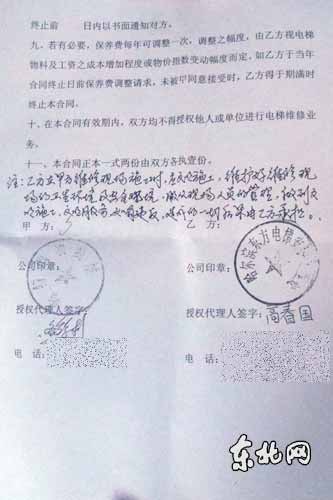 终止前 日内以书面通知对方。
九、若有必要，保养费每年可调整一次，调整之幅度，由乙方视电梯
物料及工资之成本增加程度或物价指数变动幅度而定，如乙方于当年
合同终止日前保养费调整请求，未被甲同意接受时，乙方得于期满时
终止本合同。
十、在本合同有效期内，双方均不得授权他人或单位进行电梯维修业
务。
十一、本合同正本一式两份由双方各执壹份。
注：乙方在甲方维修现场施工时，文明施工，维护好维修现
场的卫生环境 服从现场人员的管理，做到文
明施工，文明服务 造成的一切后果由乙方承担。
甲 方： 乙 方：
公司印章： 公司印章：
哈尔滨东方电梯
授权代理人签字： 授权代理人签字：高春国
电 话： 电 话：
东北网